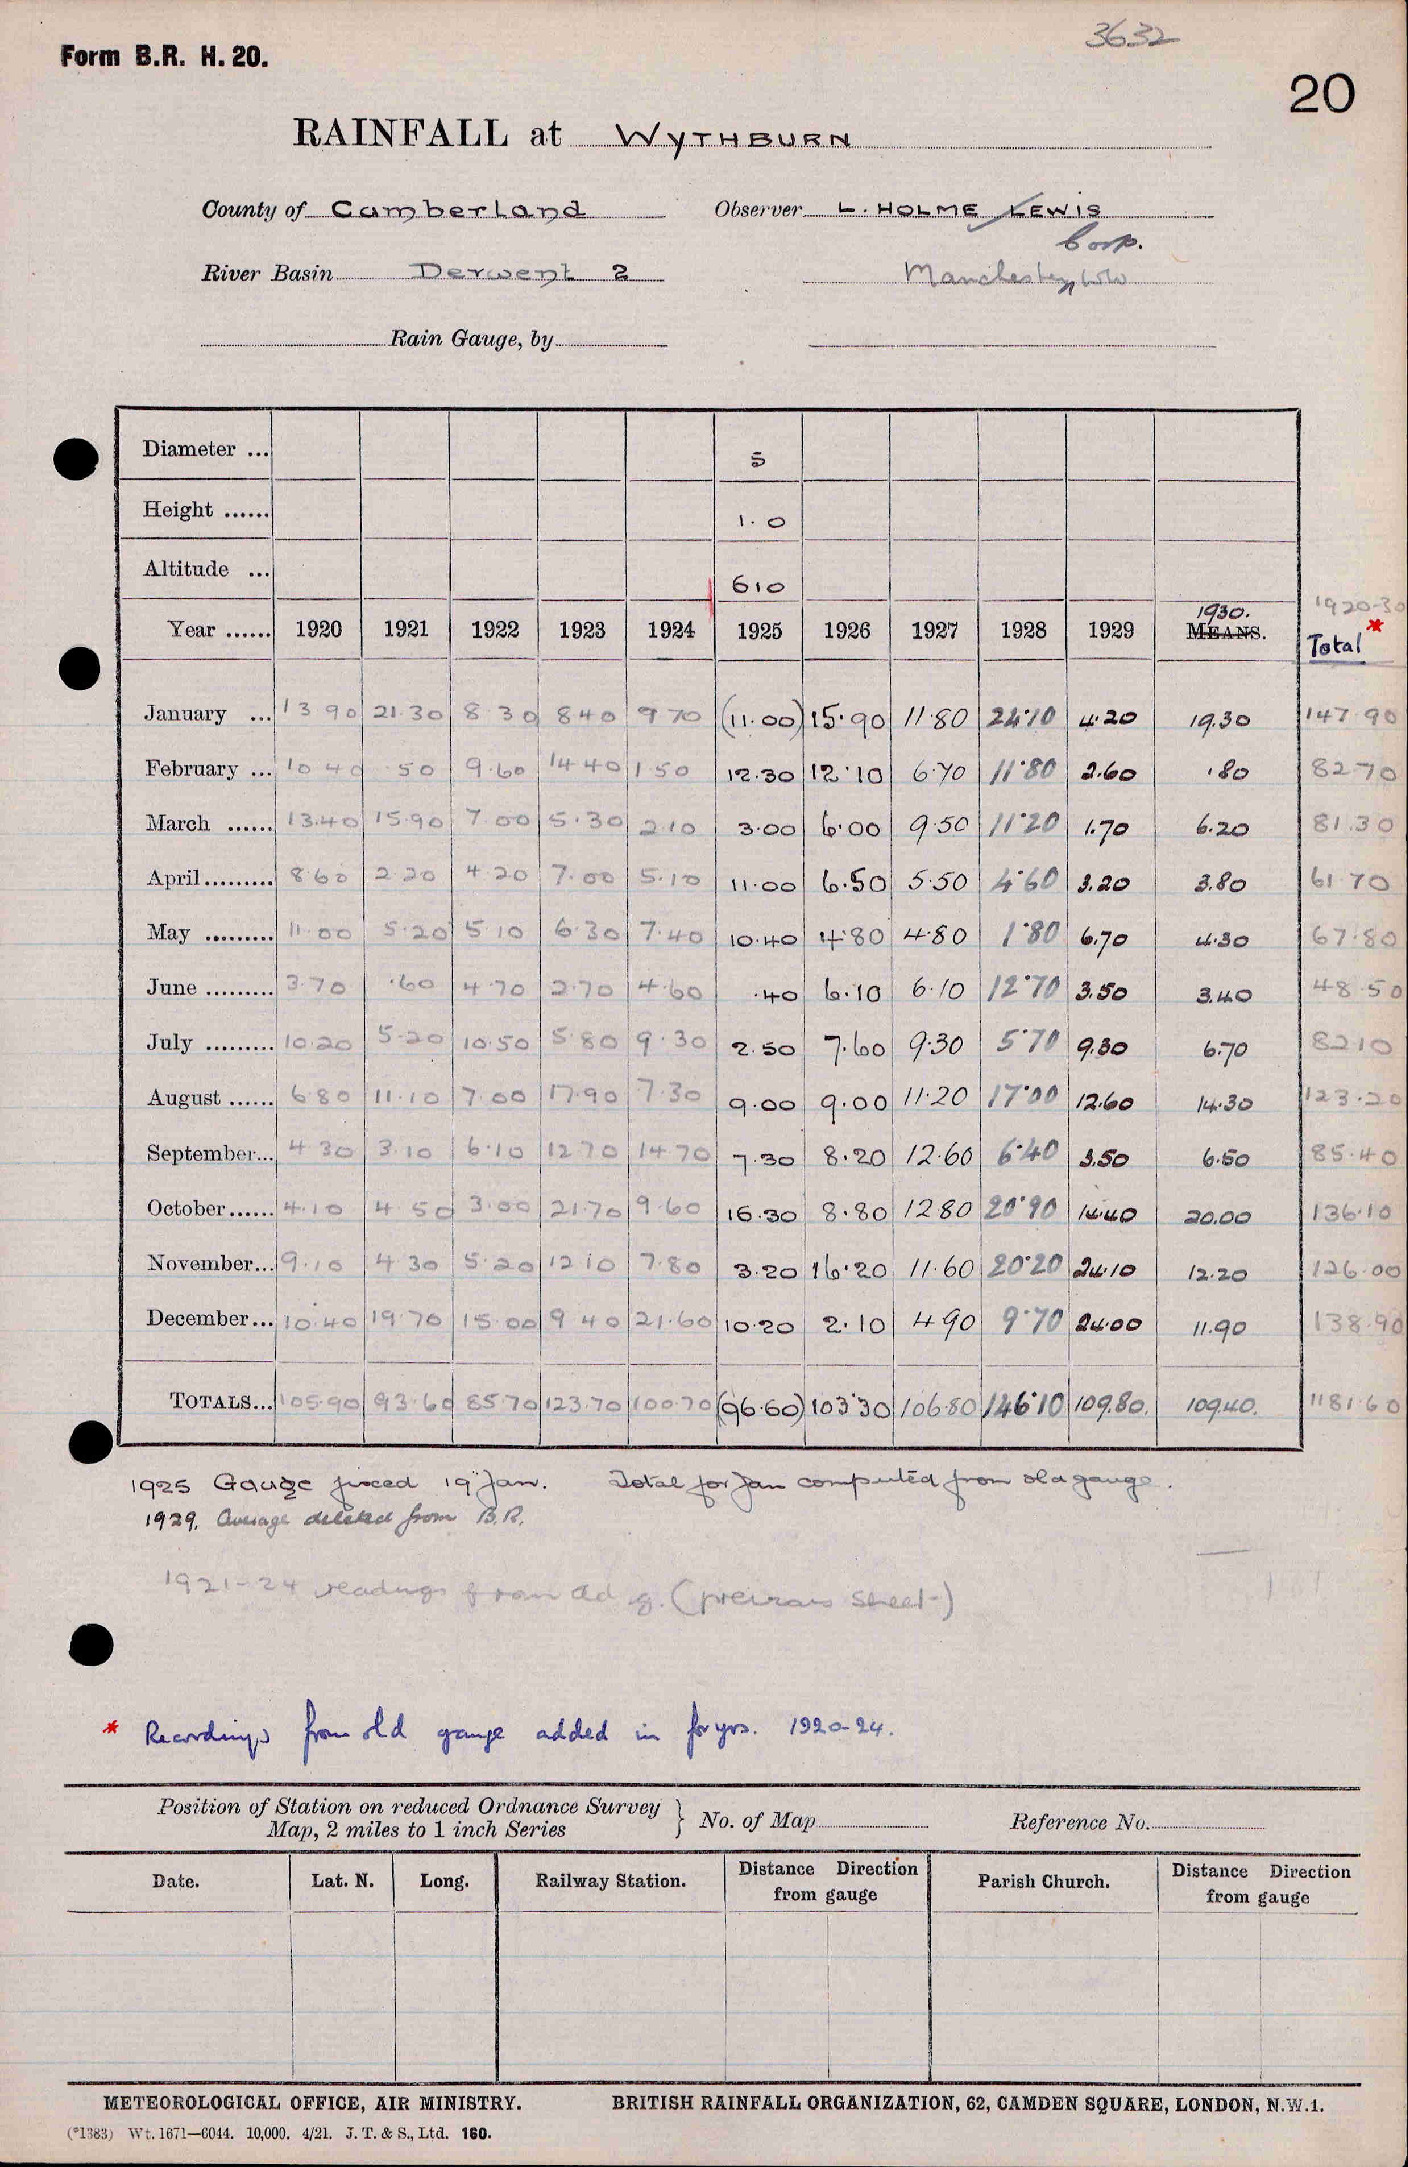 3632
Form B.R. H. 20.
20
RAINFALL at WYTHBURN
County of Cumberland Observer L. HOLME LEWIS
Corp.
River Basin Derwent 2 Manchester
Rain Gauge, by
Diameter ... 5
Height ...... 1.0
Altitude ... 610
1930. 1920-30
Year ...... 1920 1921 1922 1923 1924 1925 1926 1927 1928 1929 MEANS. Total *
January ... 13.90 21.30 8.30 8.40 9.70 (11.00) 15.90 11.80 24.10 4.20 19.30 147.90
February ... 10.40 .50 9.60 14.40 1.50 12.30 12.10 6.70 11.80 2.60 .80 82.70
March ...... 13.40 15.90 7.00 5.30 2.10 3.00 6.00 9.50 11.20 1.70 6.20 81.30
April ......... 8.60 2.20 4.20 7.00 5.10 11.00 6.50 5.50 4.60 3.20 3.80 61.70
May ......... 11.00 5.20 5.10 6.30 7.40 10.40 4.80 4.80 1.80 6.70 4.30 67.80
June ......... 3.70 .60 4.70 2.70 4.60 .40 6.10 6.10 12.70 3.50 3.40 48.50
July ......... 10.20 5.20 10.50 5.80 9.30 2.50 7.60 9.30 5.70 9.30 6.70 82.10
August ...... 6.80 11.10 7.00 17.90 7.30 9.00 9.00 11.20 17.00 12.60 14.30 123.20
September... 4.30 3.10 6.10 12.70 14.70 7.30 8.20 12.60 6.40 3.50 6.50 85.40
October ...... 4.10 4.50 3.00 21.70 9.60 16.30 8.80 12.80 20.90 14.40 20.00 136.10
November... 9.10 4.30 5.20 12.10 7.80 3.20 16.20 11.60 20.20 24.10 12.20 126.00
December... 10.40 19.70 15.00 9.40 21.60 10.20 2.10 4.90 9.70 24.00 11.90 138.90
TOTALS... 105.90 93.60 85.70 123.70 100.70 (96.60) 103.30 106.80 146.10 109.80. 109.40. 1181.60
1925 Gauge placed 19 Jan. Total for Jan computed from old gauge.
1929. Average deleted from B.R.
1921-24 readings from old g. (previous sheet)
* Recordings from old gauge added in for yrs. 1920-24.
Position of Station on reduced Ordnance Survey Map, 2 miles to 1 inch Series } No. of Map Reference No.
Date. Lat. N. Long. Railway Station. Distance Direction from gauge Parish Church. Distance Direction from gauge
METEOROLOGICAL OFFICE, AIR MINISTRY. BRITISH RAINFALL ORGANIZATION, 62, CAMDEN SQUARE, LONDON, N.W.1.
(*1383) Wt. 1671—6044. 10,000. 4/21. J. T. & S., Ltd. 160.